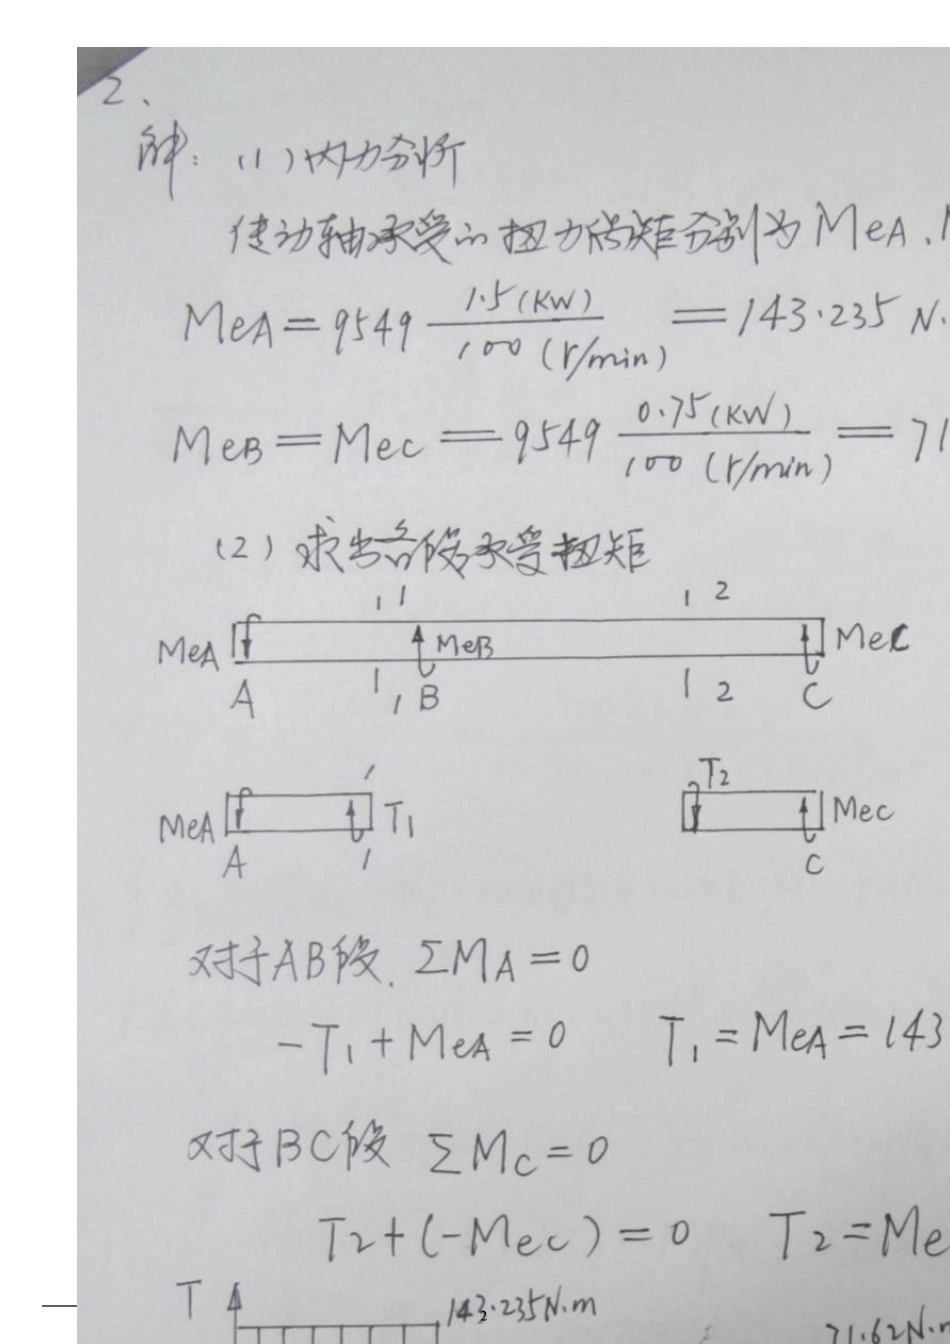 2、
解：(1)内力分析
传动轴承受的扭力偶矩分别为MeA、
MeA=9549 1.5(KW)/100(r/min) =143.235 N·
MeB=Mec=9549 0.75(KW)/100(r/min) =71
(2)求出各段承受扭矩
1 1 1 2
MeA MeB Mec
A 1 1 B 1 2 C
1 T2
MeA T1 Mec
A 1 C
对于AB段. ΣMA=0
-T1+MeA=0 T1=MeA=143
对于BC段 ΣMc=0
T2+(-Mec)=0 T2=Me
T 143.235N·m
2
71.62N·